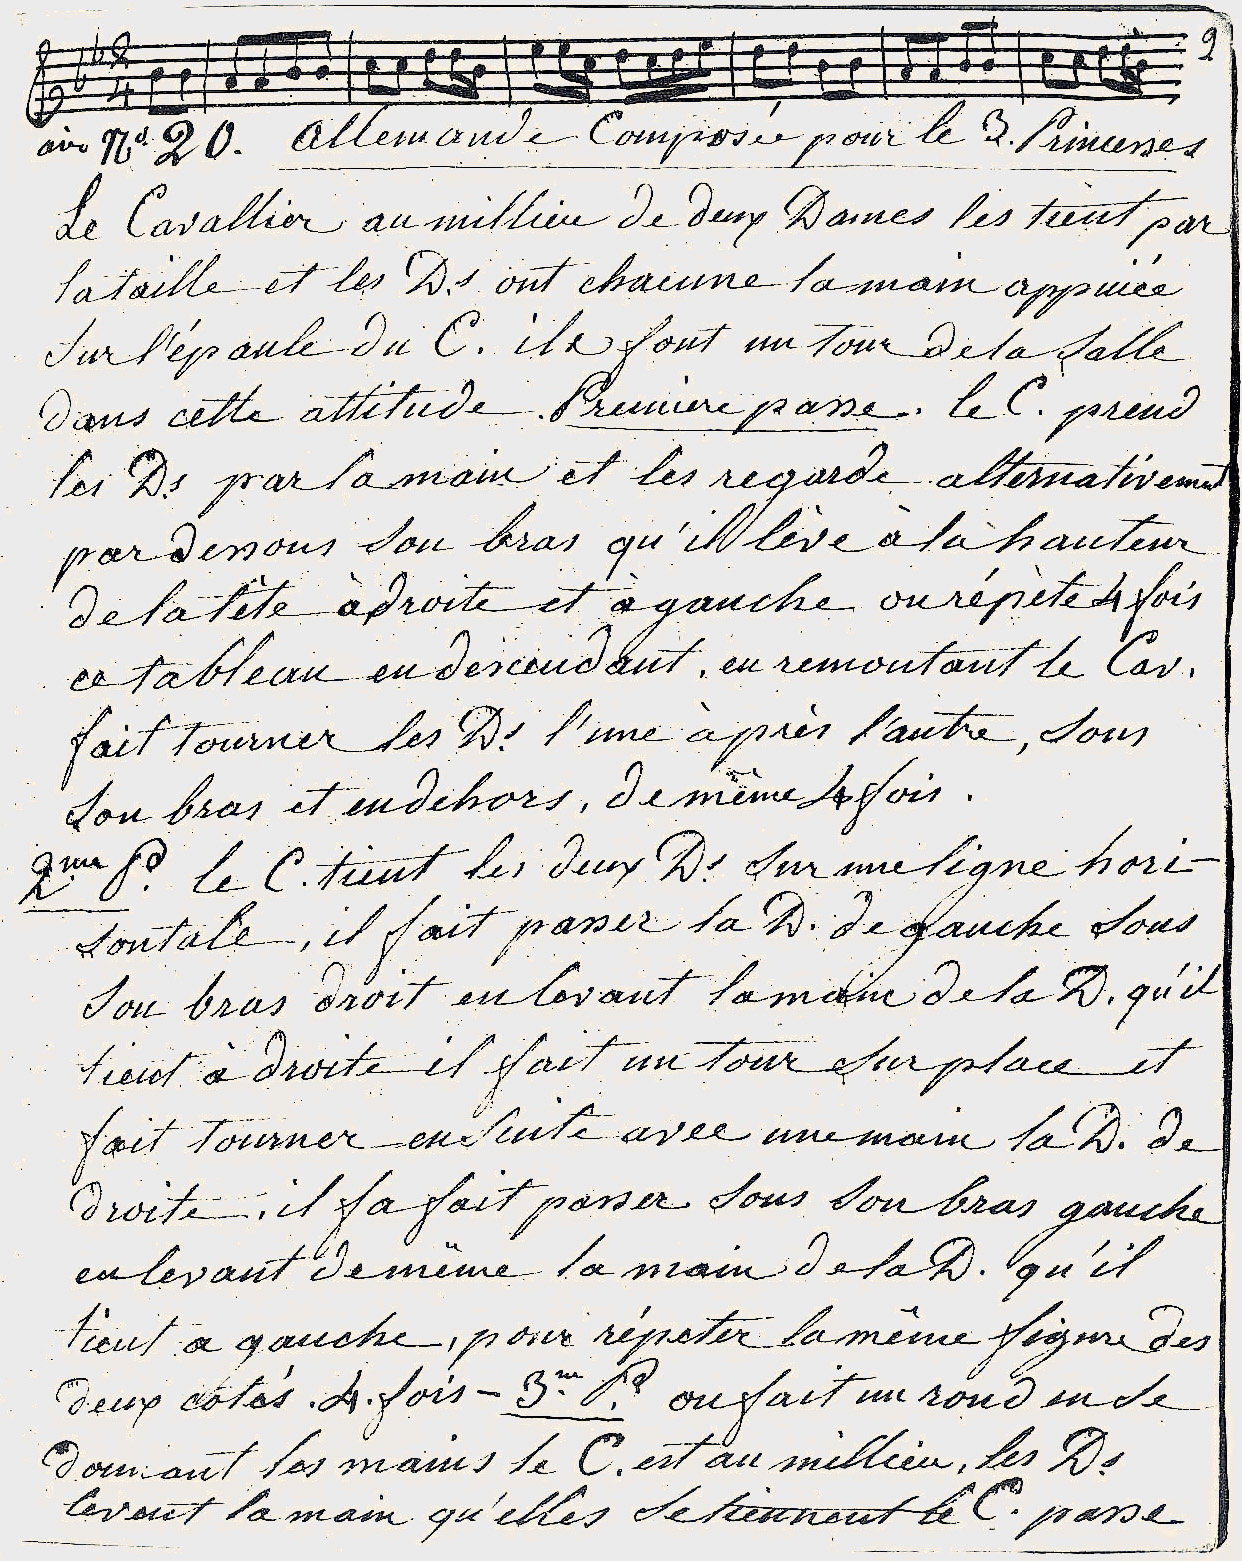 9
2
4
air N.º 20. Allemande Composée pour le 3. Princesses
Le Cavallier au millieu de deux Dames les tient par
la taille et les D.s ont chacune la main appuiée
sur l'épaule du C. ils font un tour de la salle
dans cette attitude. Premiere passe. le C. prend
les D.s par la main et les regarde alternativement
par dessous son bras qu'il lève à la hauteur
de la tête à droite et à gauche on répète 4 fois
ce tableau en descendant, en remontant le Cav.
fait tourner les D.s l'une après l'autre, sous
son bras et en dehors, de même 4 fois.
2.me P.e le C. tient les deux D.s sur une ligne hori-
sontale, il fait passer la D. de gauche sous
son bras droit en levant la main de la D. qu'il
tient à droite il fait un tour sur place et
fait tourner ensuite avec une main la D. de
droite, il la fait passer sous son bras gauche
en levant de même la main de la D. qu'il
tient a gauche, pour répeter la même figure des
deux cotés .4. fois - 3.me P.e on fait un rond en se
donnant les mains le C. est au millieu, les D.s
levent la main qu'elles se tiennent le C. passe